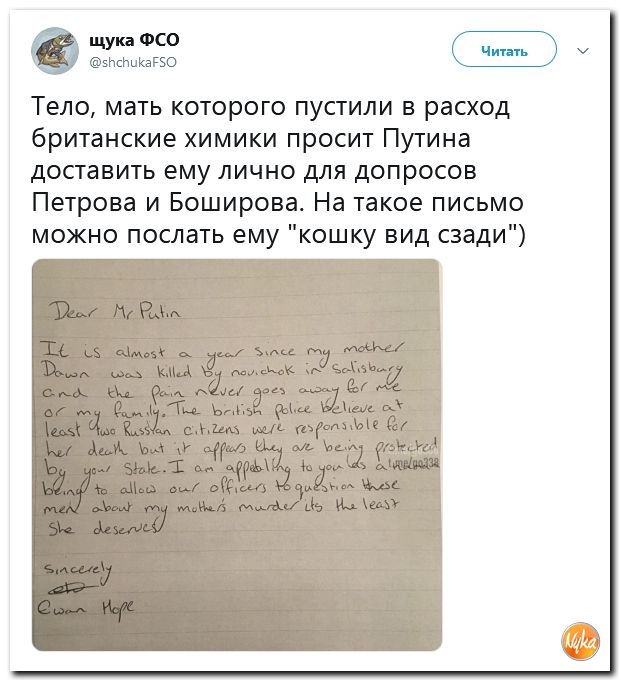 щука ФСО
@shchukaFSO
Читать
Тело, мать которого пустили в расход
британские химики просит Путина
доставить ему лично для допросов
Петрова и Боширова. На такое письмо
можно послать ему "кошку вид сзади")
Dear Mr Putin
It is almost a year since my mother
Dawn was killed by novichok in Salisbury
and the pain never goes away for me
or my family. The british police believe at
least two Russian citizens were responsible for
her death but it appears they are being protected
by your State. I am appealing to you as a
being to allow our officers to question these
men about my mothers murder its the least
She deserves
Sincerely
Ewan Hope